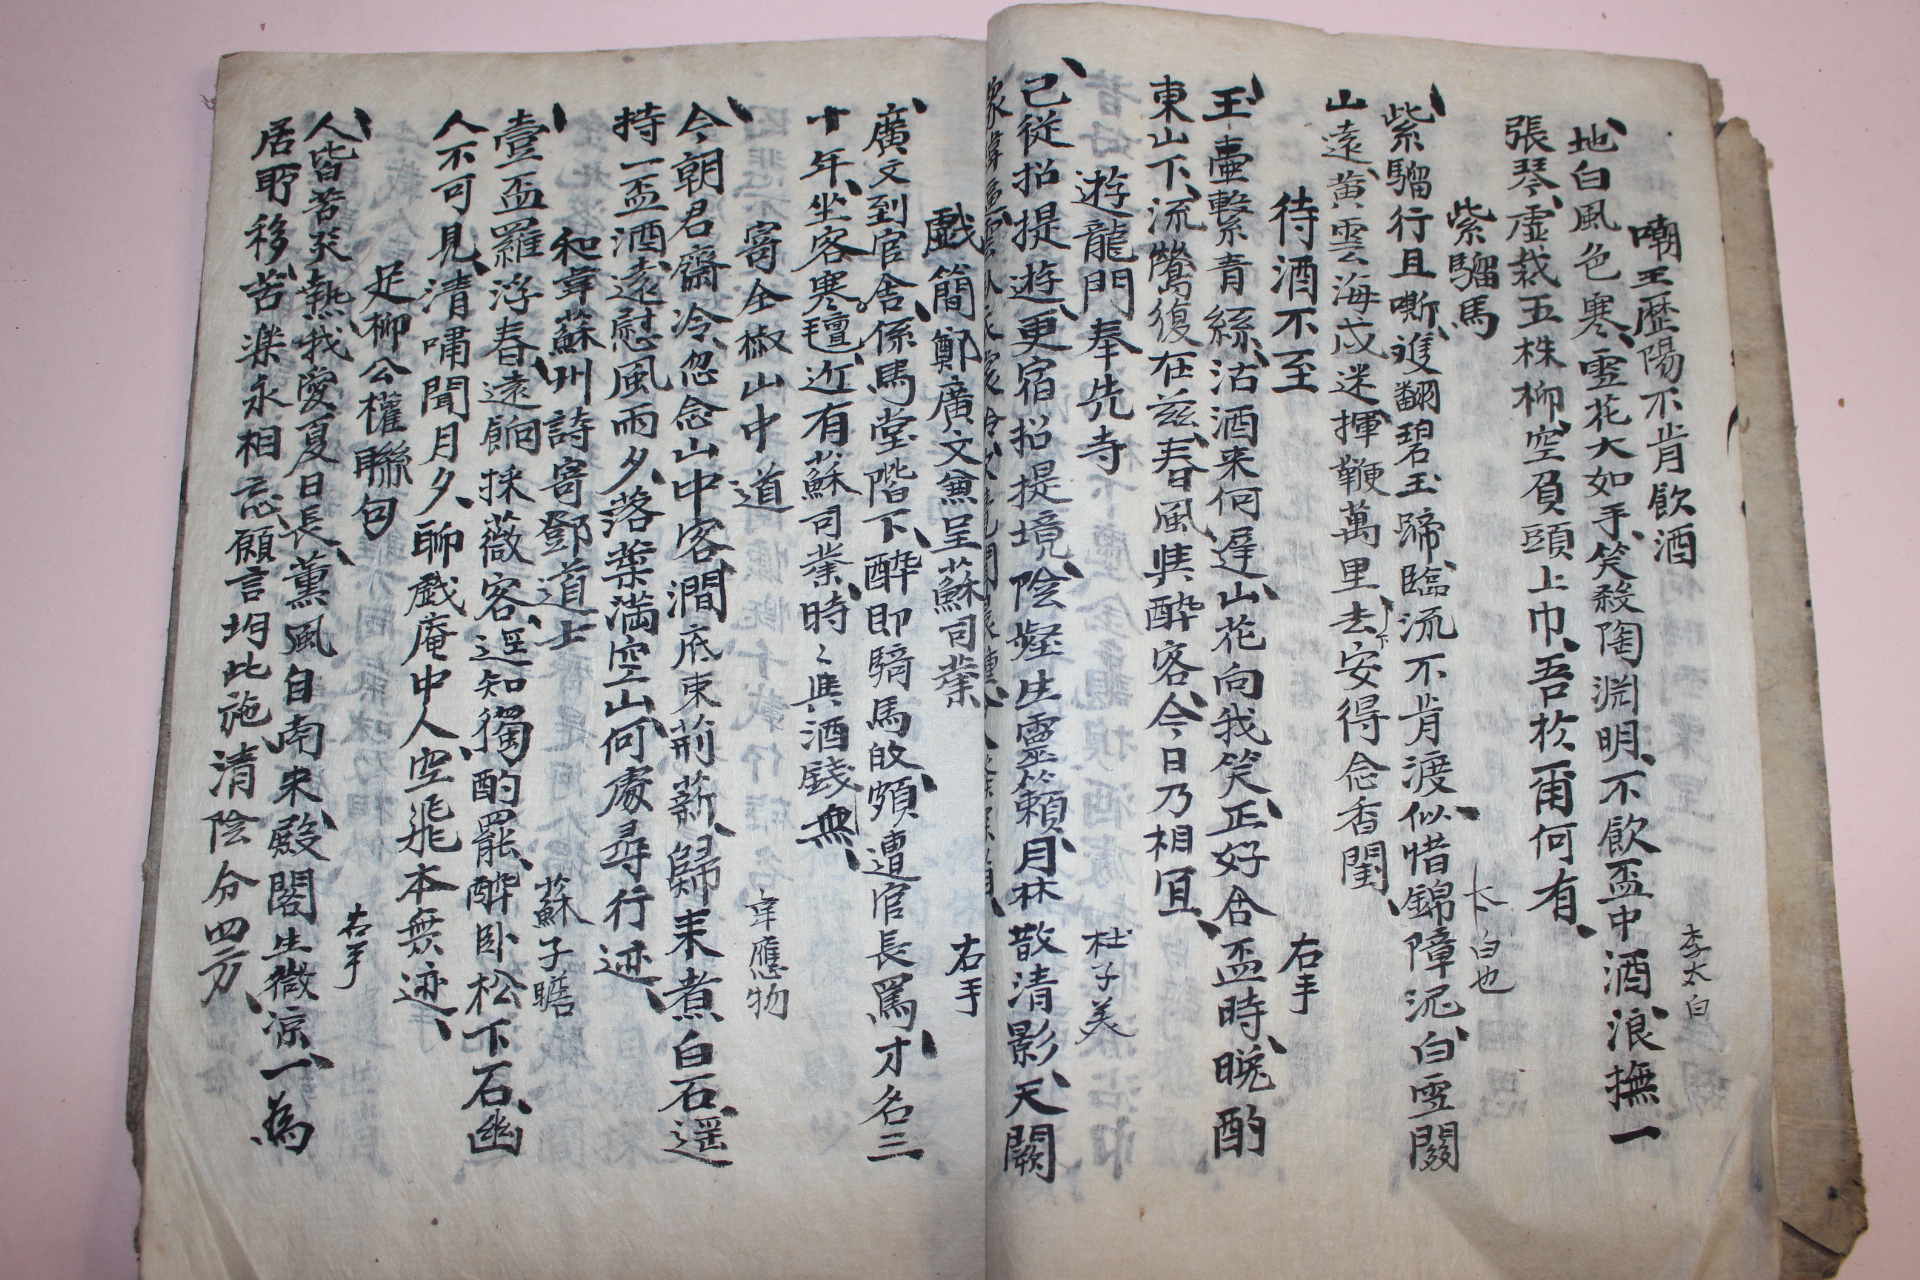 嘲王歷陽不肯飲酒 李太白
地白風色寒雪花大如手笑殺陶淵明不飲盃中酒浪撫一
張琴虛栽五株柳空負頭上巾吾於爾何有
紫騮馬 太白也
紫騮行且嘶雙翻碧玉蹄臨流不肯渡似惜錦障泥白雪関
山遠黃雲海戍迷揮鞭萬里去安得念香閨
待酒不至 右手
玉壷繫青絲沽酒来何遅山花向我笑正好含盃時晩酌
東山下流鶯復在茲春風與醉客今日乃相宜
遊龍門奉先寺 杜子美
已從招提遊更宿招提境陰壑生靈籟月林散清影天闕
戱簡鄭廣文兼呈蘇司業 右手
廣文到官舍係馬堂階下醉即騎馬皈頗遭官長罵才名三
十年坐客寒氈近有蘇司業時〻與酒錢無
寄全椒山中道 韋應物
今朝君齋冷忽念山中客澗底束荊薪歸来煮白石遥
持一盃酒遠慰風雨夕落葉滿空山何處尋行迹
和韋蘇州詩寄鄧道士 蘇子瞻
壹盃羅浮春遠餉採薇客遥知獨酌罷醉卧松下石幽
人不可見清嘯聞月夕聊戱庵中人空飛本無迹
足柳公權聯句 右手
人皆苦炎熱我愛夏日長薫風自南来殿閣生微凉一為
居所移苦楽永相忘願言均此施清陰分四方